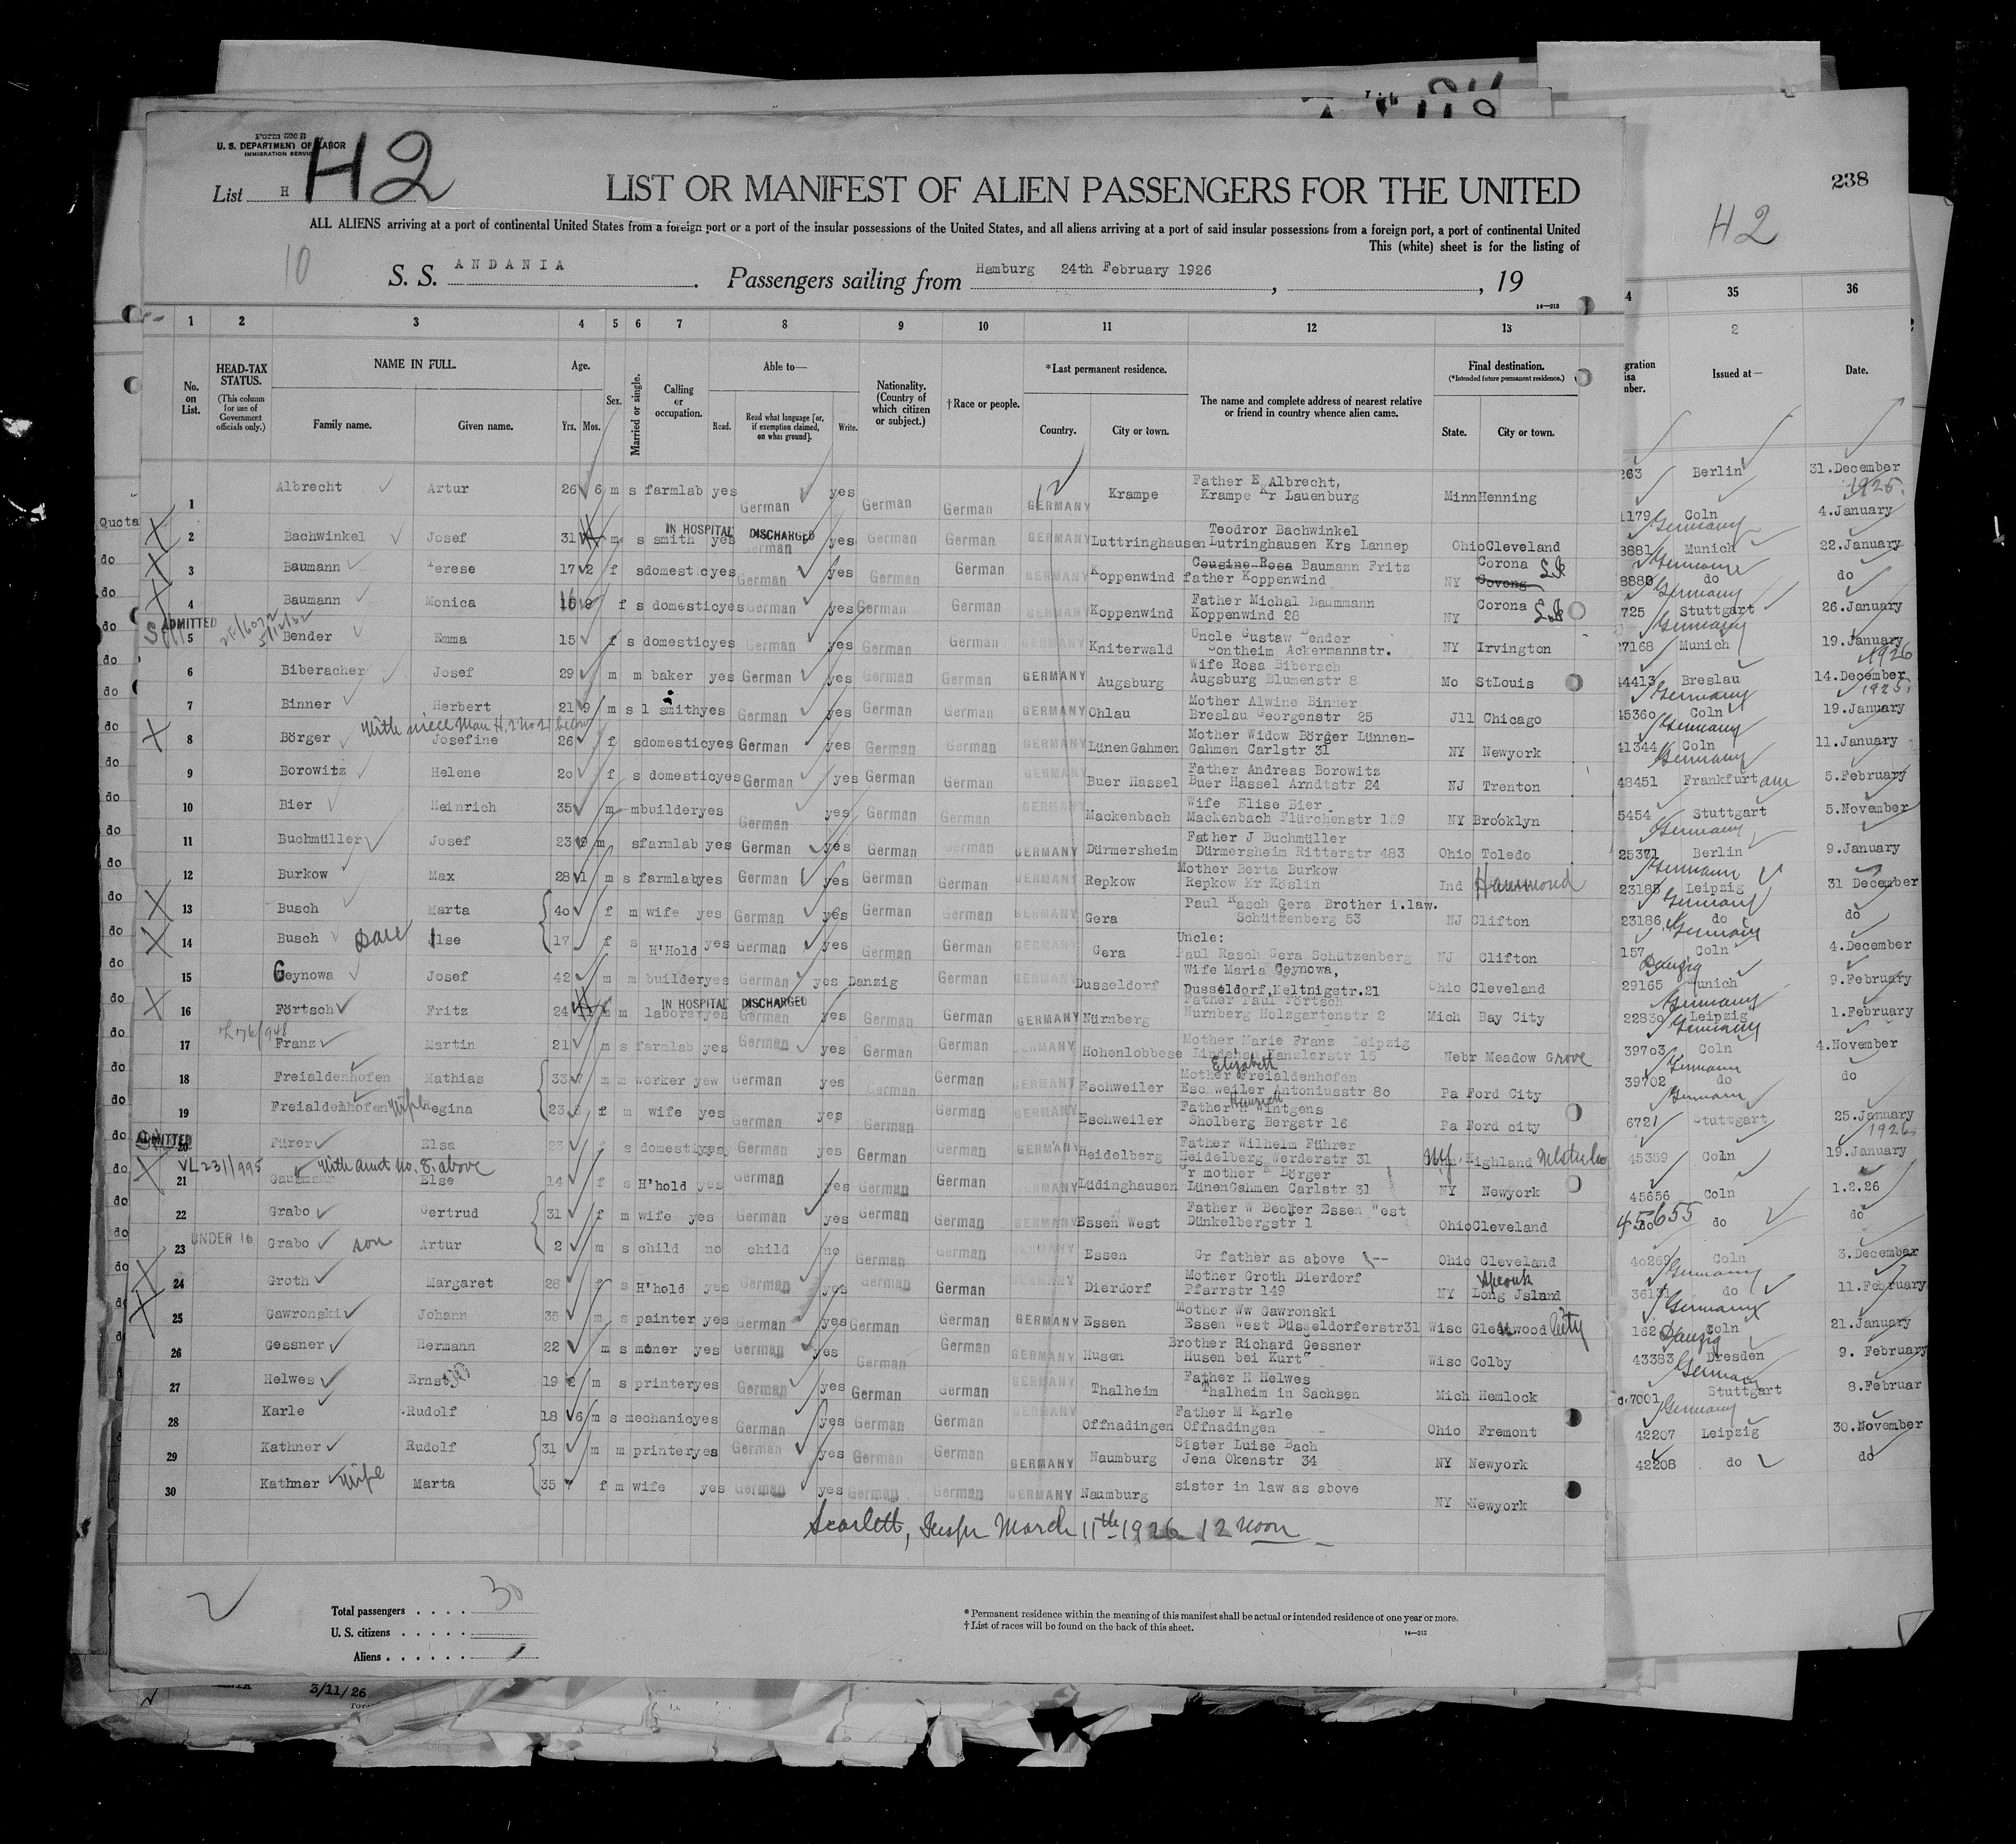 Form 500 B
U. S. DEPARTMENT OF LABOR
IMMIGRATION SERVICE
H2
List H
LIST OR MANIFEST OF ALIEN PASSENGERS FOR THE UNITED
238
H2
ALL ALIENS arriving at a port of continental United States from a foreign port or a port of the insular possessions of the United States, and all aliens arriving at a port of said insular possessions from a foreign port, a port of continental United
This (white) sheet is for the listing of
10
S. S. ANDANIA. Passengers sailing from Hamburg 24th February 1926, , 19
14—213
1 2 3 4 5 6 7 8 9 10 11 12 13 4 35 36
2
No. on List.
HEAD-TAX STATUS.
(This column for use of Government officials only.)
NAME IN FULL.
Family name. Given name.
Age.
Yrs. Mos.
Sex.
Married or single.
Calling or occupation.
Able to—
Read. Read what language [or, if exemption claimed, on what ground]. Write.
Nationality. (Country of which citizen or subject.)
† Race or people.
* Last permanent residence.
Country. City or town.
The name and complete address of nearest relative or friend in country whence alien came.
Final destination.
(*Intended future permanent residence.)
State. City or town.
Issued at—
Date.
1 Albrecht Artur 26 6 m s farmlab yes German yes German German GERMANY Krampe Father E Albrecht, Krampe Kr Lauenburg Minn Henning 263 Berlin 31.December 1925.
Quota 2 Bachwinkel Josef 31 m s smith yes IN HOSPITAL DISCHARGED German yes German German GERMANY Luttringhausen Teodror Bachwinkel Lutringhausen Krs Lannep Ohio Cleveland 1179 Coln Germany 4.January
do 3 Baumann Terese 17 2 f s domestic yes German yes German German GERMANY Koppenwind Cousine Rosa Baumann Fritz father Koppenwind NY Corona L.I. 3881 Munich Germany 22.January
do 4 Baumann Monica 16 f s domestic yes German yes German German GERMANY Koppenwind Father Michal Baummann Koppenwind 28 NY Corona L.I. 8880 do Germany do
do ADMITTED 5 Bender Emma 15 f s domestic yes German yes German German GERMANY Kniterwald Uncle Gustaw Bender Sontheim Ackermannstr. NY Irvington 725 Stuttgart Germany 26.January
do 6 Biberacher Josef 29 m m baker yes German yes German German GERMANY Augsburg Wife Rosa Bibersch Augsburg Blumenstr 8 Mo StLouis 27168 Munich 19.January 1926
do 7 Binner Herbert 21 9 m s l smith yes German yes German German GERMANY Ohlau Mother Alwine Binner Breslau Georgenstr 25 Jll Chicago 44413 Breslau Germany 14.December 1925.
With niece Man H.2 No 21 below
do 8 Börger Josefine 26 f s domestic yes German yes German German GERMANY LünenGahmen Mother Widow Börger Lünnen-Gahmen Carlstr 31 NY Newyork 45360 Coln Germany 19.January
do 9 Borowitz Helene 20 f s domestic yes German yes German German GERMANY Buer Hassel Father Andreas Borowitz Buer Hassel Arndtstr 24 NJ Trenton 41344 Coln Germany 11.January
do 10 Bier Heinrich 35 m m builder yes German yes German German GERMANY Mackenbach Wife Elise Bier Mackenbach Flürchenstr 189 NY Brooklyn 48451 Frankfurt am 5.February
do 11 Buchmüller Josef 23 9 m s farmlab yes German yes German German GERMANY Dürmersheim Father J Buchmüller Dürmersheim Ritterstr 483 Ohio Toledo 5454 Stuttgart Germany 5.November
do 12 Burkow Max 28 1 m s farmlab yes German yes German German GERMANY Repkow Mother Berta Burkow Repkow Kr Köslin Ind Hammond 25371 Berlin Germany 9.January
do 13 Busch Marta 40 f m wife yes German yes German German GERMANY Gera Paul Rasch Gera Brother i.law. Schützenberg 53 NJ Clifton 23185 Leipzig Germany 31 December
do 14 Busch Dau Ilse 17 f s H'Hold yes German yes German German GERMANY Gera Uncle: Paul Rasch Gera Schützenberg NJ Clifton 23186 do Germany do
do 15 Ceynowa Josef 42 m m builder yes German yes Danzig German GERMANY Dusseldorf Wife Maria Ceynowa, Dusseldorf, Keltnigstr.21 Ohio Cleveland 157 Coln Danzig 4.December
do 16 Förtsch Fritz 24 m m laborer yes IN HOSPITAL DISCHARGED German yes German German GERMANY Nürnberg Father Paul Förtsch Nurnberg Holzgartenstr 2 Mich Bay City 29165 Munich Germany 9.February
do 17 Franz Martin 21 m s farmlab yes German yes German German GERMANY Hohenlobbese Mother Marie Franz Leipzig Lindenau Kanzlerstr 15 Nebr Meadow Grove 22830 Leipzig Germany 1.February
do 18 Freialdenhofen Mathias 33 7 m m worker yew German yes German German GERMANY Eschweiler Mother Elizabeth Freialdenhofen Esc weiler Antoniusstr 80 Pa Ford City 39703 Coln Germany 4.November
do 19 Freialdenhofen Wife Regina 23 8 f m wife yes German yes German German GERMANY Eschweiler Father Heinrich Wintgens Sholberg Bergstr 16 Pa Ford city 39702 do Germany do
do ADMITTED 20 Fürer Elsa 23 f s domest yes German yes German German GERMANY Heidelberg Father Wilhelm Führer Heidelberg Werderstr 31 NY Highland 6721 Stuttgart 25.January 1926
VL 231/995 With aunt no. 8. above
do 21 Gausmann Else 14 f s H'hold yes German yes German German GERMANY Lüdinghausen Gr mother Börger LünenGahmen Carlstr 31 NY Newyork 45359 Coln 19.January
do 22 Grabo Gertrud 31 f m wife yes German yes German German GERMANY Essen West Father W Becker Essen West Dünkelbergstr 1 Ohio Cleveland 45656 Coln 1.2.26
do UNDER 16 23 Grabo son Artur 2 m s child no child no German German GERMANY Essen Gr father as above Ohio Cleveland 45655 do do
do 24 Groth Margaret 28 f s H'hold yes German yes German German GERMANY Dierdorf Mother Groth Dierdorf Pfarrstr 149 NY Long Jsland 40269 Coln Germany 3.December
25 Gawronski Johann 35 m s painter yes German yes German German GERMANY Essen Mother Ww Gawronski Essen West Düsseldorferstr31 Wisc Glenwood City 36131 do Germany 11.February
26 Gessner Hermann 22 m s miner yes German yes German German GERMANY Husen Brother Richard Gessner Husen bei Kurt Wisc Colby 162 Coln Danzig 21.January
27 Helwes Ernst 19 2 m s printer yes German yes German German GERMANY Thalheim Father H Helwes Thalheim in Sachsen Mich Hemlock 43383 Dresden Germany 9. February
28 Karle Rudolf 18 6 m s mechanic yes German yes German German GERMANY Offnadingen Father M Karle Offnadingen Ohio Fremont 7001 Stuttgart Germany 8.Februar
29 Kathner Rudolf 31 m m printer yes German yes German German GERMANY Naumburg Sister Luise Bach Jena Okenstr 34 NY Newyork 42207 Leipzig 30.November
30 Kathner Wife Marta 35 f m wife yes German yes German German GERMANY Naumburg sister in law as above NY Newyork 42208 do do
Scarlett, Inspr March 11th 1926 12 noon
Total passengers . . . . 30
U. S. citizens . . . . .
Aliens . . . . . .
* Permanent residence within the meaning of this manifest shall be actual or intended residence of one year or more.
† List of races will be found on the back of this sheet.
14—213
3/11/26